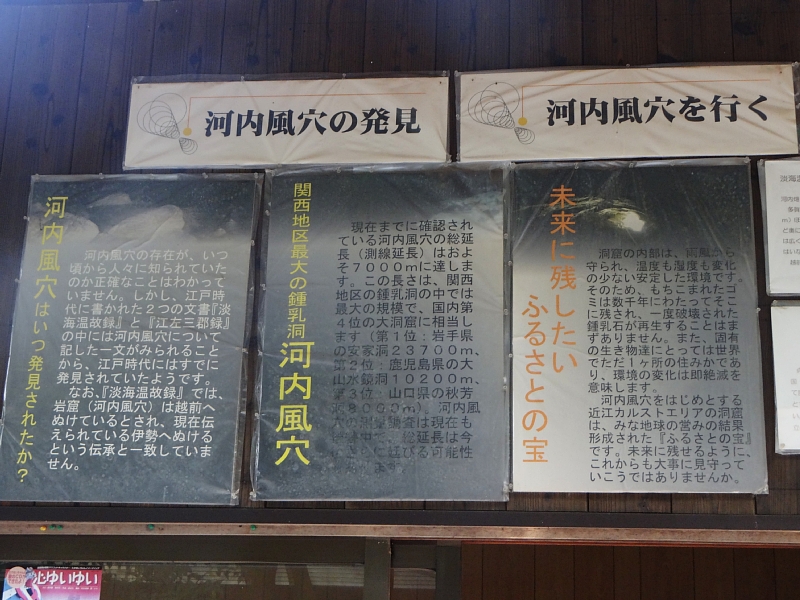 河内風穴の発見
河内風穴を行く
河内風穴はいつ発見されたか?
河内風穴の存在が、いつ
頃から人々に知られていた
のか正確なことはわかって
いません。しかし、江戸時
代に書かれた2つの文書『淡
海温故録』と『江左三郡録』
の中には河内風穴について
記した一文がみられること
から、江戸時代にはすでに
発見されていたようです。
なお、『淡海温故録』では、
岩窟(河内風穴)は越前へ
ぬけているとされ、現在伝
えられている伊勢へぬける
という伝承と一致していま
せん。
関西地区最大の鍾乳洞
河内風穴
現在までに確認され
ている河内風穴の総延
長(測線延長)はおよ
そ7000mに達しま
す。この長さは、関西
地区の鍾乳洞の中では
最大の規模で、国内第
4位の大洞窟に相当し
ます(第1位:岩手県
の安家洞23700m、
第2位:鹿児島県の大
山水鏡洞10200m、
第3位:山口県の秋芳
洞8000m)。河内風
穴の測量調査は現在も
総延長は今
びる可能性
ます。
未来に残したい
ふるさとの宝
洞窟の内部は、雨風から
守られ、温度も湿度も変化
の少ない安定した環境です。
そのため、もちこまれたゴ
ミは数千年にわたってそこ
に残され、一度破壊された
鍾乳石が再生することはま
ずありません。また、固有
の生き物達にとっては世界
でただ1ヶ所の住みかであ
り、環境の変化は即絶滅を
意味します。
河内風穴をはじめとする
近江カルストエリアの洞窟
は、みな地球の営みの結果
形成された『ふるさとの宝』
です。未来に残せるように、
これからも大事に見守って
いこうではありませんか。
心ゆいゆい